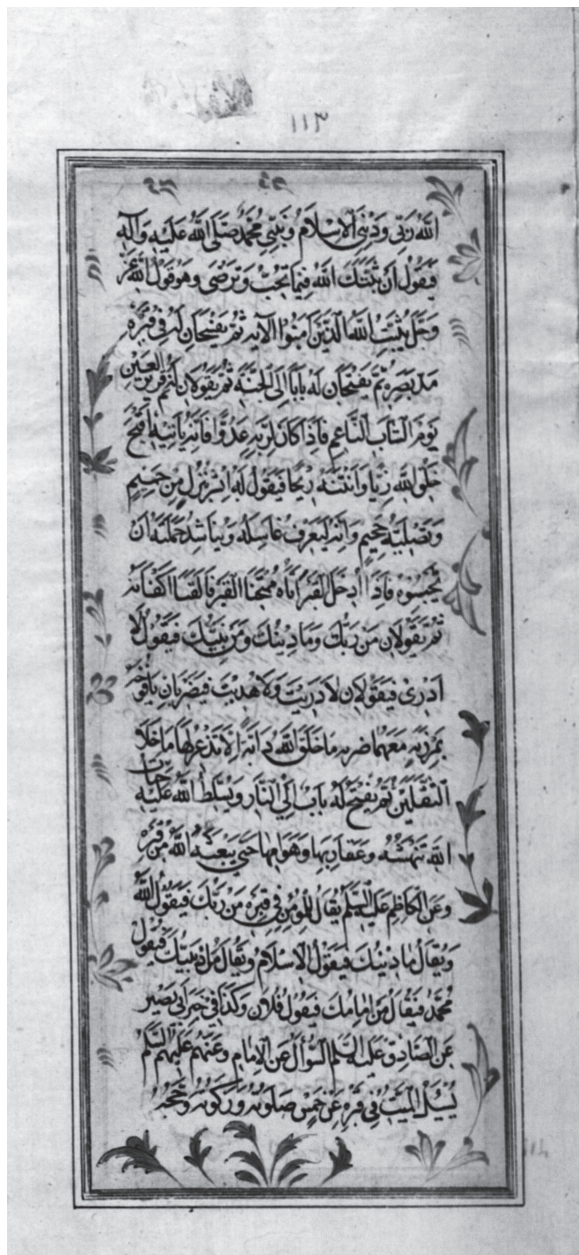 ١١٣
الله ربّي وديني الاسلام ونبيي محمد صلى الله عليه وآله
فيقولان ثبتك الله فيما تحب وترضى وهو قول الله عز
وجل يثبت الله الذين امنوا الآية ثم يفتحان له في قبره
مد بصره ثم يفتحان له بابا الى الجنة ثم يقولان له نم قرير العين
نوم الشاب الناعم فاذا كان لربه عدوا فانه يأتيه اقبح
خلق الله زيا وانتنه ريحا فيقول له ابشر بنزل من حميم
وتصلية جحيم وانه ليعرف غاسله ويناشد حملته ان
يحبسوه فاذا ادخل القبر اتاه ممتحنا القبر فالقيا اكفانه
ثم يقولان من ربك وما دينك ومن نبيك فيقول لا
ادرى فيقولان لا دريت ولا هديت فيضربان يافوخه
بمرزبه معهما ضربه ما خلق الله دابة الا تذعر لها ما خلا
الثقلين ثم يفتح له باب الى النار ويسلط الله عليه حيات
الله تنهشه وعقاربها وهوامها حتى يبعثه الله من قبره
وعن الكاظم عليه السلم يقال للمؤمن في قبره من ربك فيقول الله
ويقال ما دينك فيقول الاسلام ويقال من نبيك فيقول
محمد فيقال من امامك فيقول فلان وكذا في خبر ابي بصير
عن الصادق عليه السلم السؤال عن الامام وعنهم عليهم السلم
يسئل الميت في قبره عن خمس صلوته وزكوته وحجه